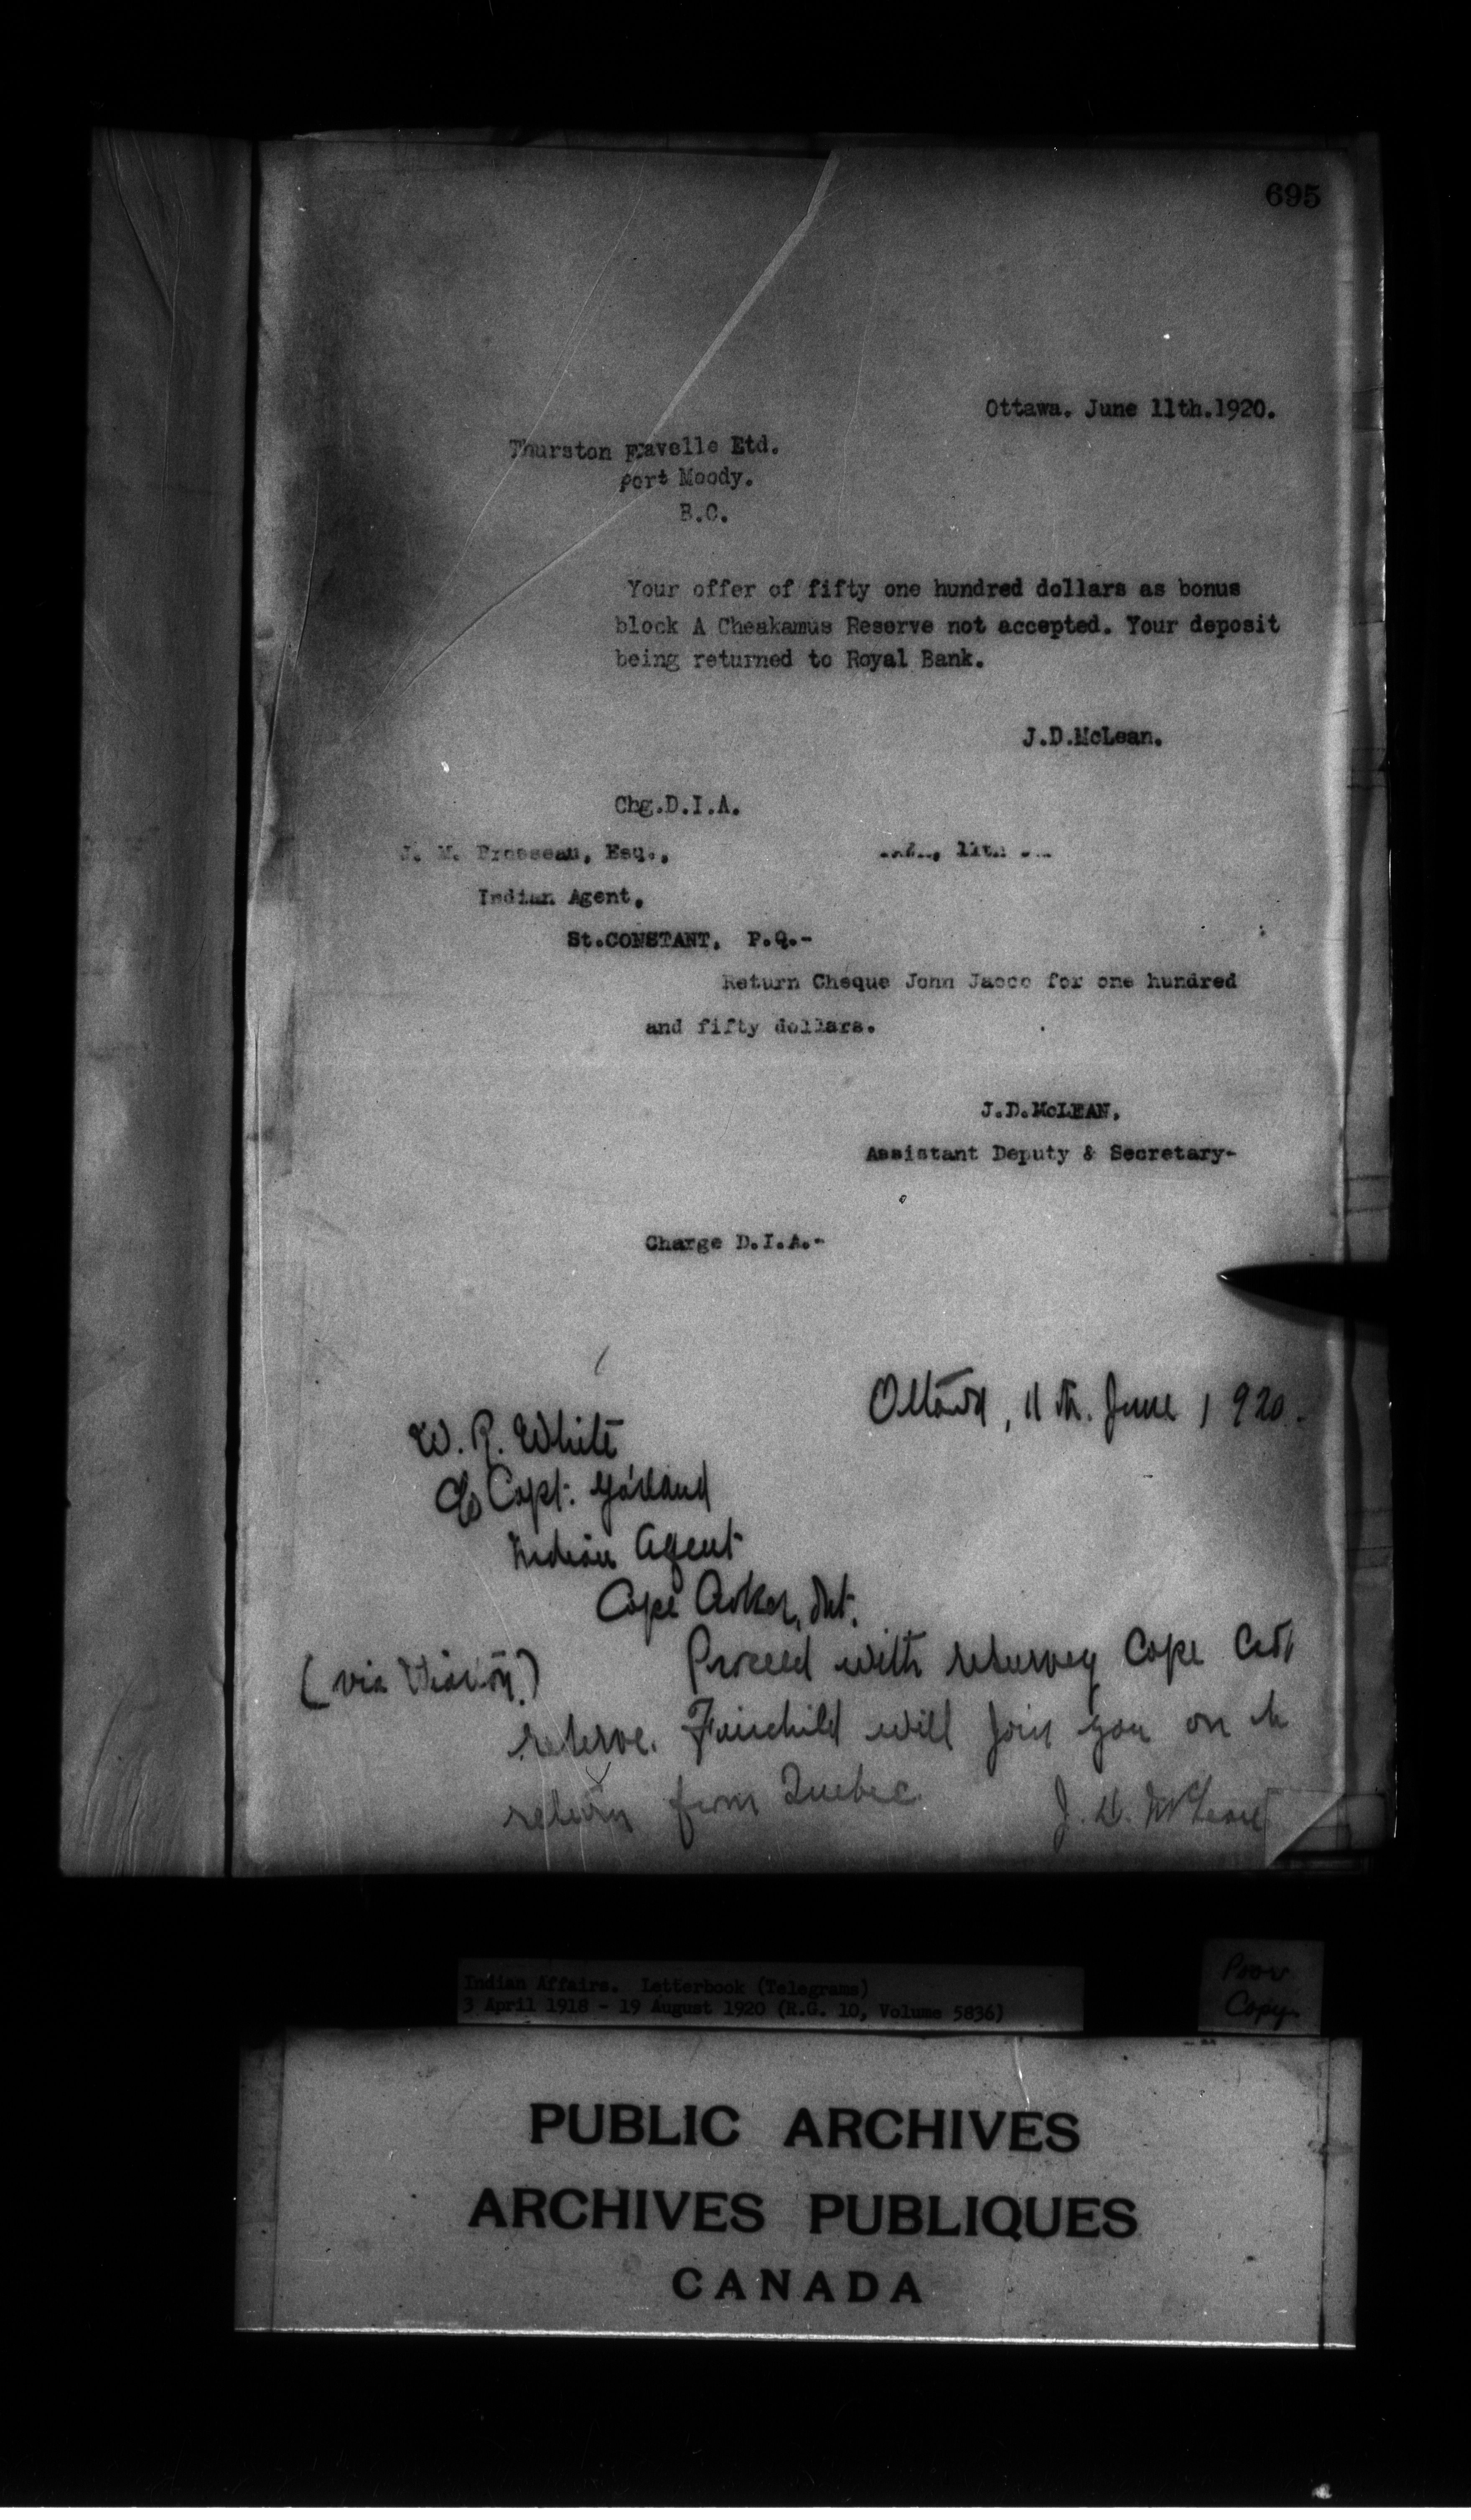 695
Ottawa. June 11th.1920.
Thurston Flavelle Ltd.
Port Moody.
B.C.
Your offer of fifty one hundred dollars as bonus
block A Cheakamus Reserve not accepted. Your deposit
being returned to Royal Bank.
J.D.McLean.
Chg.D.I.A.
J. M. Brosseau, Esq., 11th
Indian Agent,
St.CONSTANT, P.Q.-
Return Cheque John Jacco for one hundred
and fifty dollars.
J.D.McLEAN,
Assistant Deputy & Secretary-
Charge D.I.A.-
Ottawa, 11th. June 1920.
W. R. White
c/o Capt. Garland
Indian Agent
Cape Croker, Ont.
(via Wiarton) Proceed with resurvey Cape
reserve. Fairchild will join you on
return from Quebec
J. D. McLean
Indian Affairs. Letterbook (Telegrams)
3 April 1918 - 19 August 1920 (R.G. 10, Volume 5836)
Poor
Copy
PUBLIC ARCHIVES
ARCHIVES PUBLIQUES
CANADA